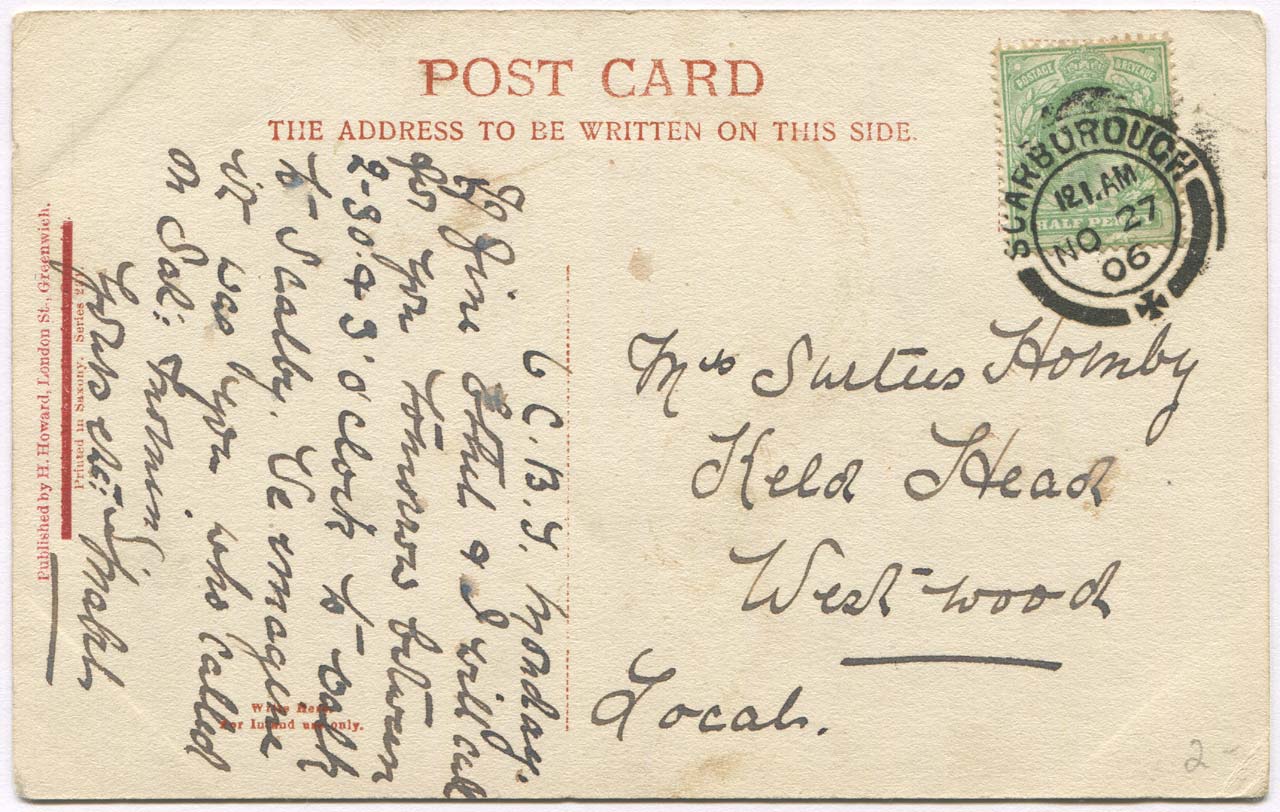 POST CARD
THE ADDRESS TO BE WRITTEN ON THIS SIDE.
POSTAGE & REVENUE
HALF PENNY
SCARBOROUGH
12 1. AM
NO 27
06
6 C. B. T. Monday.
If fine Ethel & I will call
for you tomorrow between
2-30. & 3 o'clock to walk
to Scalby. We imagine
it was you who called
on Sat: morning
Yours etc: Mabel
Mrs Surtees Hornby
Keld Head
West-wood
Local.
Published by H. Howard, London St., Greenwich.
Printed in Saxony. Series
Write Here
For Inland use only.
2-